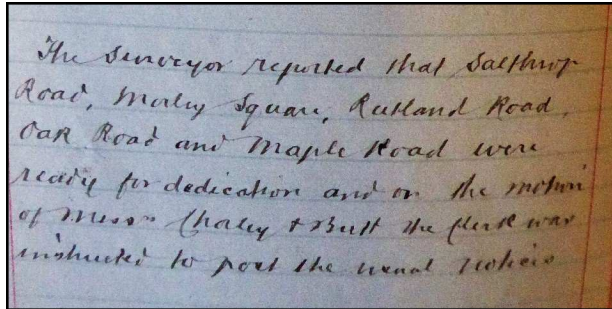 The Surveyor reported that Salthrop
Road, Morley Square, Rutland Road,
Oak Road and Maple Road were
ready for dedication and on the motion
of Messrs Chorley & Butt the Clerk was
instructed to post the usual notices